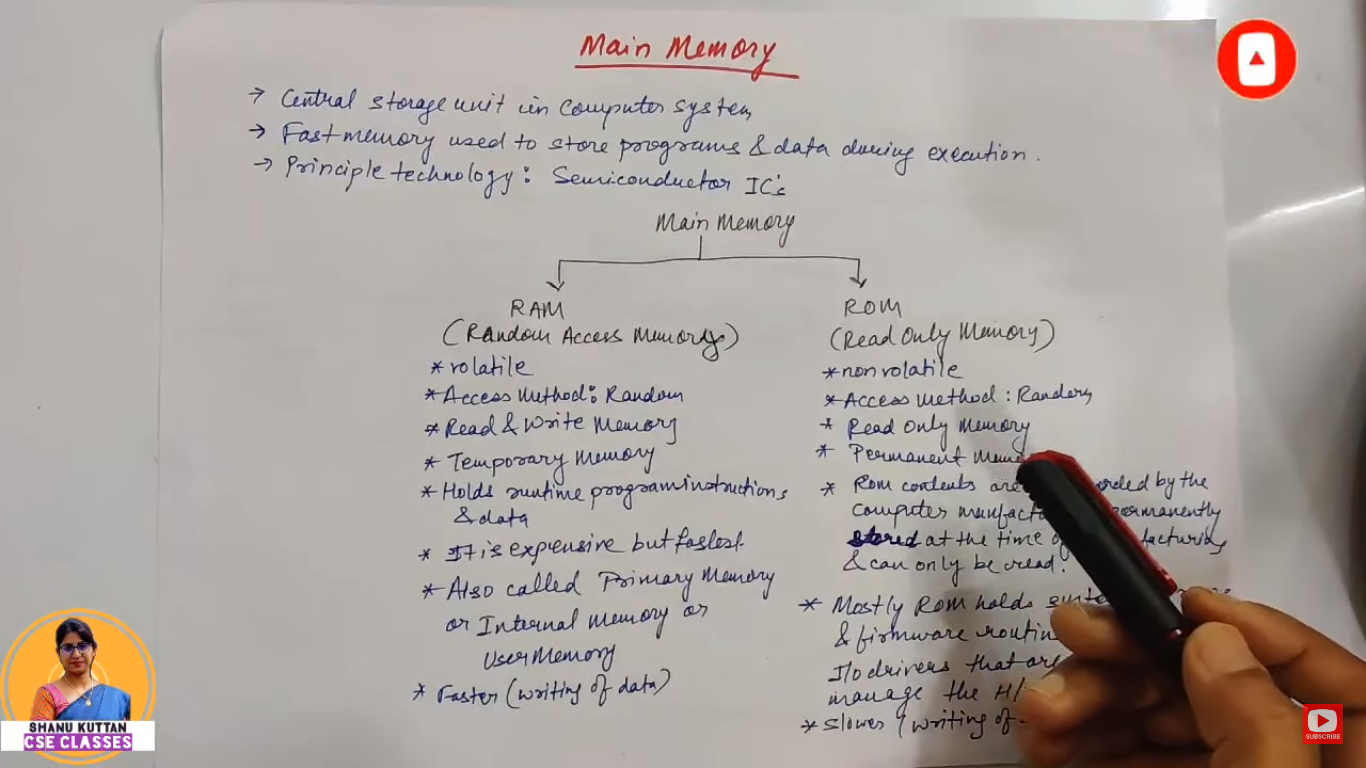 Main Memory
→ Central storage unit in computer system
→ Fast memory used to store programs & data during execution.
→ Principle technology : Semiconductor IC's
Main Memory
RAM
(Random Access Memory)
* volatile
* Access Method : Random
* Read & Write Memory
* Temporary Memory
* Holds runtime program instructions
& data
* It is expensive but fastest.
* Also called Primary Memory
or Internal memory or
User Memory
* Faster (writing of data)
ROM
(Read Only Memory)
* non volatile
* Access method : Random
* Read Only Memory
* Permanent
* Rom contents are by the
computer permanently
stored at the time
& can only be read.
* Mostly ROM holds
& firmware
I/o drivers that are
manage the
* Slower (writing of
SHANU KUTTAN
CSE CLASSES
SUBSCRIBE